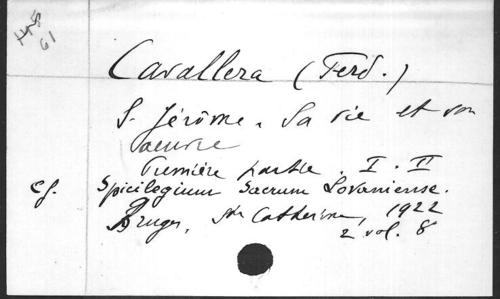 61
Cavallera (Ferd.)
S. Jérôme. Sa vie et son
oeuvre
Première partie. I. II
cf. Spicilegium Sacrum Lovaniense.
Bruges, Ste Catherine, 1922
2 vol. 8